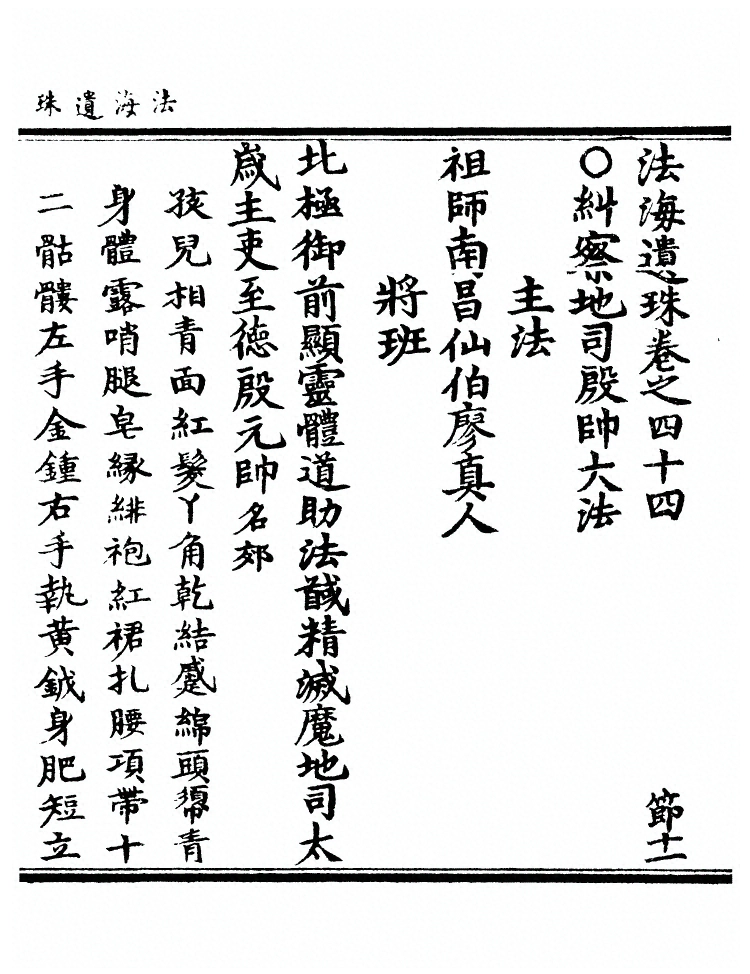 法海遺珠
法海遺珠卷之四十四 節十一
○糾察地司殷帥大法
主法
祖師南昌仙伯廖真人
將班
北極御前顯靈體道助法馘精滅魔地司太
歲主吏至德殷元帥名郊
孩兒相青面紅髮丫角乾結蹙綿頭㡘青
身體露哨腿皂緣緋袍紅裙扎腰項帶十
二骷髏左手金鍾右手執黃鉞身肥短立